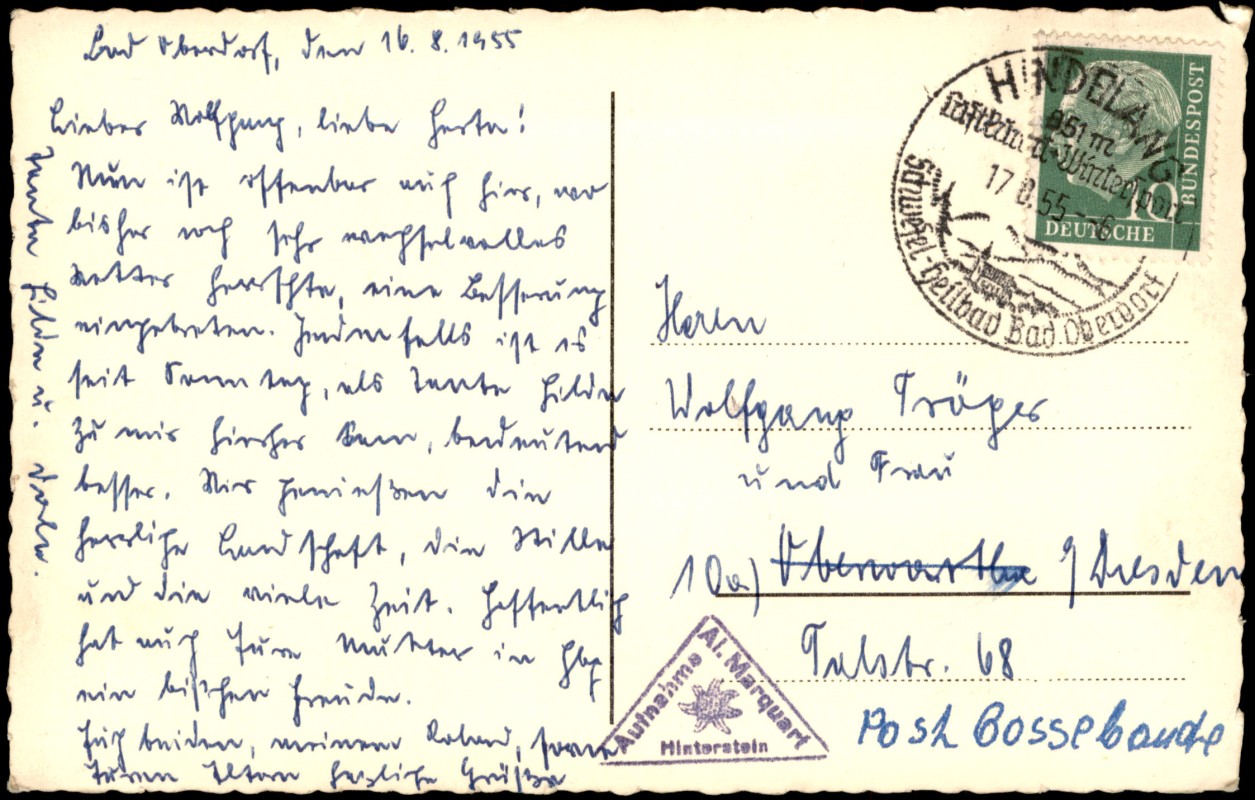 Bad Oberdorf, den 16.8.1955
Lieber Wolfgang, liebe Herta!
Nun ist offenbar auch hier, wo
bisher noch sehr wechselvolles
Wetter herrschte, eine Besserung
eingetreten. Jedenfalls ist es
seit Sonntag, als Tante Hilde
zu mir hierher kam, bedeutend
besser. Wir genießen die
herrliche Landschaft, die Stille
und die viele Zeit. Hoffentlich
hat auch Eure Mutter in Hbg
ein bißchen Freude.
Euch beiden, meinem Roland, sowie
Euren Eltern herzliche Grüße
Tante Hilde u.
HINDELANG
851 m
Luftkurort-Wintersport
17.8.55--8
Schwefel-Heilbad Bad Oberdorf
DEUTSCHE
BUNDESPOST
10
Herrn
Wolfgang Tröger
und Frau
10a) Oberwartha b/Dresden
Talstr. 68
Post Cossebaude
Aufnahme
Al. Marquart
Hinterstein